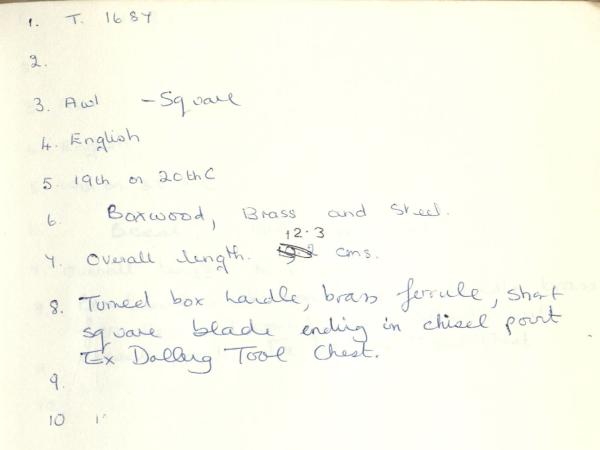 1. T. 1687
2.
3. Awl - Square
4. English
5. 19th or 20th C
6. Boxwood, Brass and Steel.
12.3
7. Overall length. cms.
8. Turned box handle, brass ferrule, short
square blade ending in chisel point
Ex Tool Chest.
9.
10